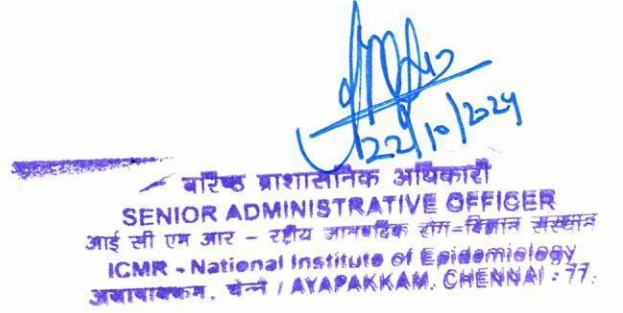 22/10/2024
वरिष्ठ प्रशासनिक अधिकारी
SENIOR ADMINISTRATIVE OFFICER
आई सी एम आर - राष्ट्रीय जानपदिक रोग-विज्ञान संस्थान
ICMR - National Institute of Epidemiology
अयापाक्कम, चेन्नै / AYAPAKKAM, CHENNAI - 77.